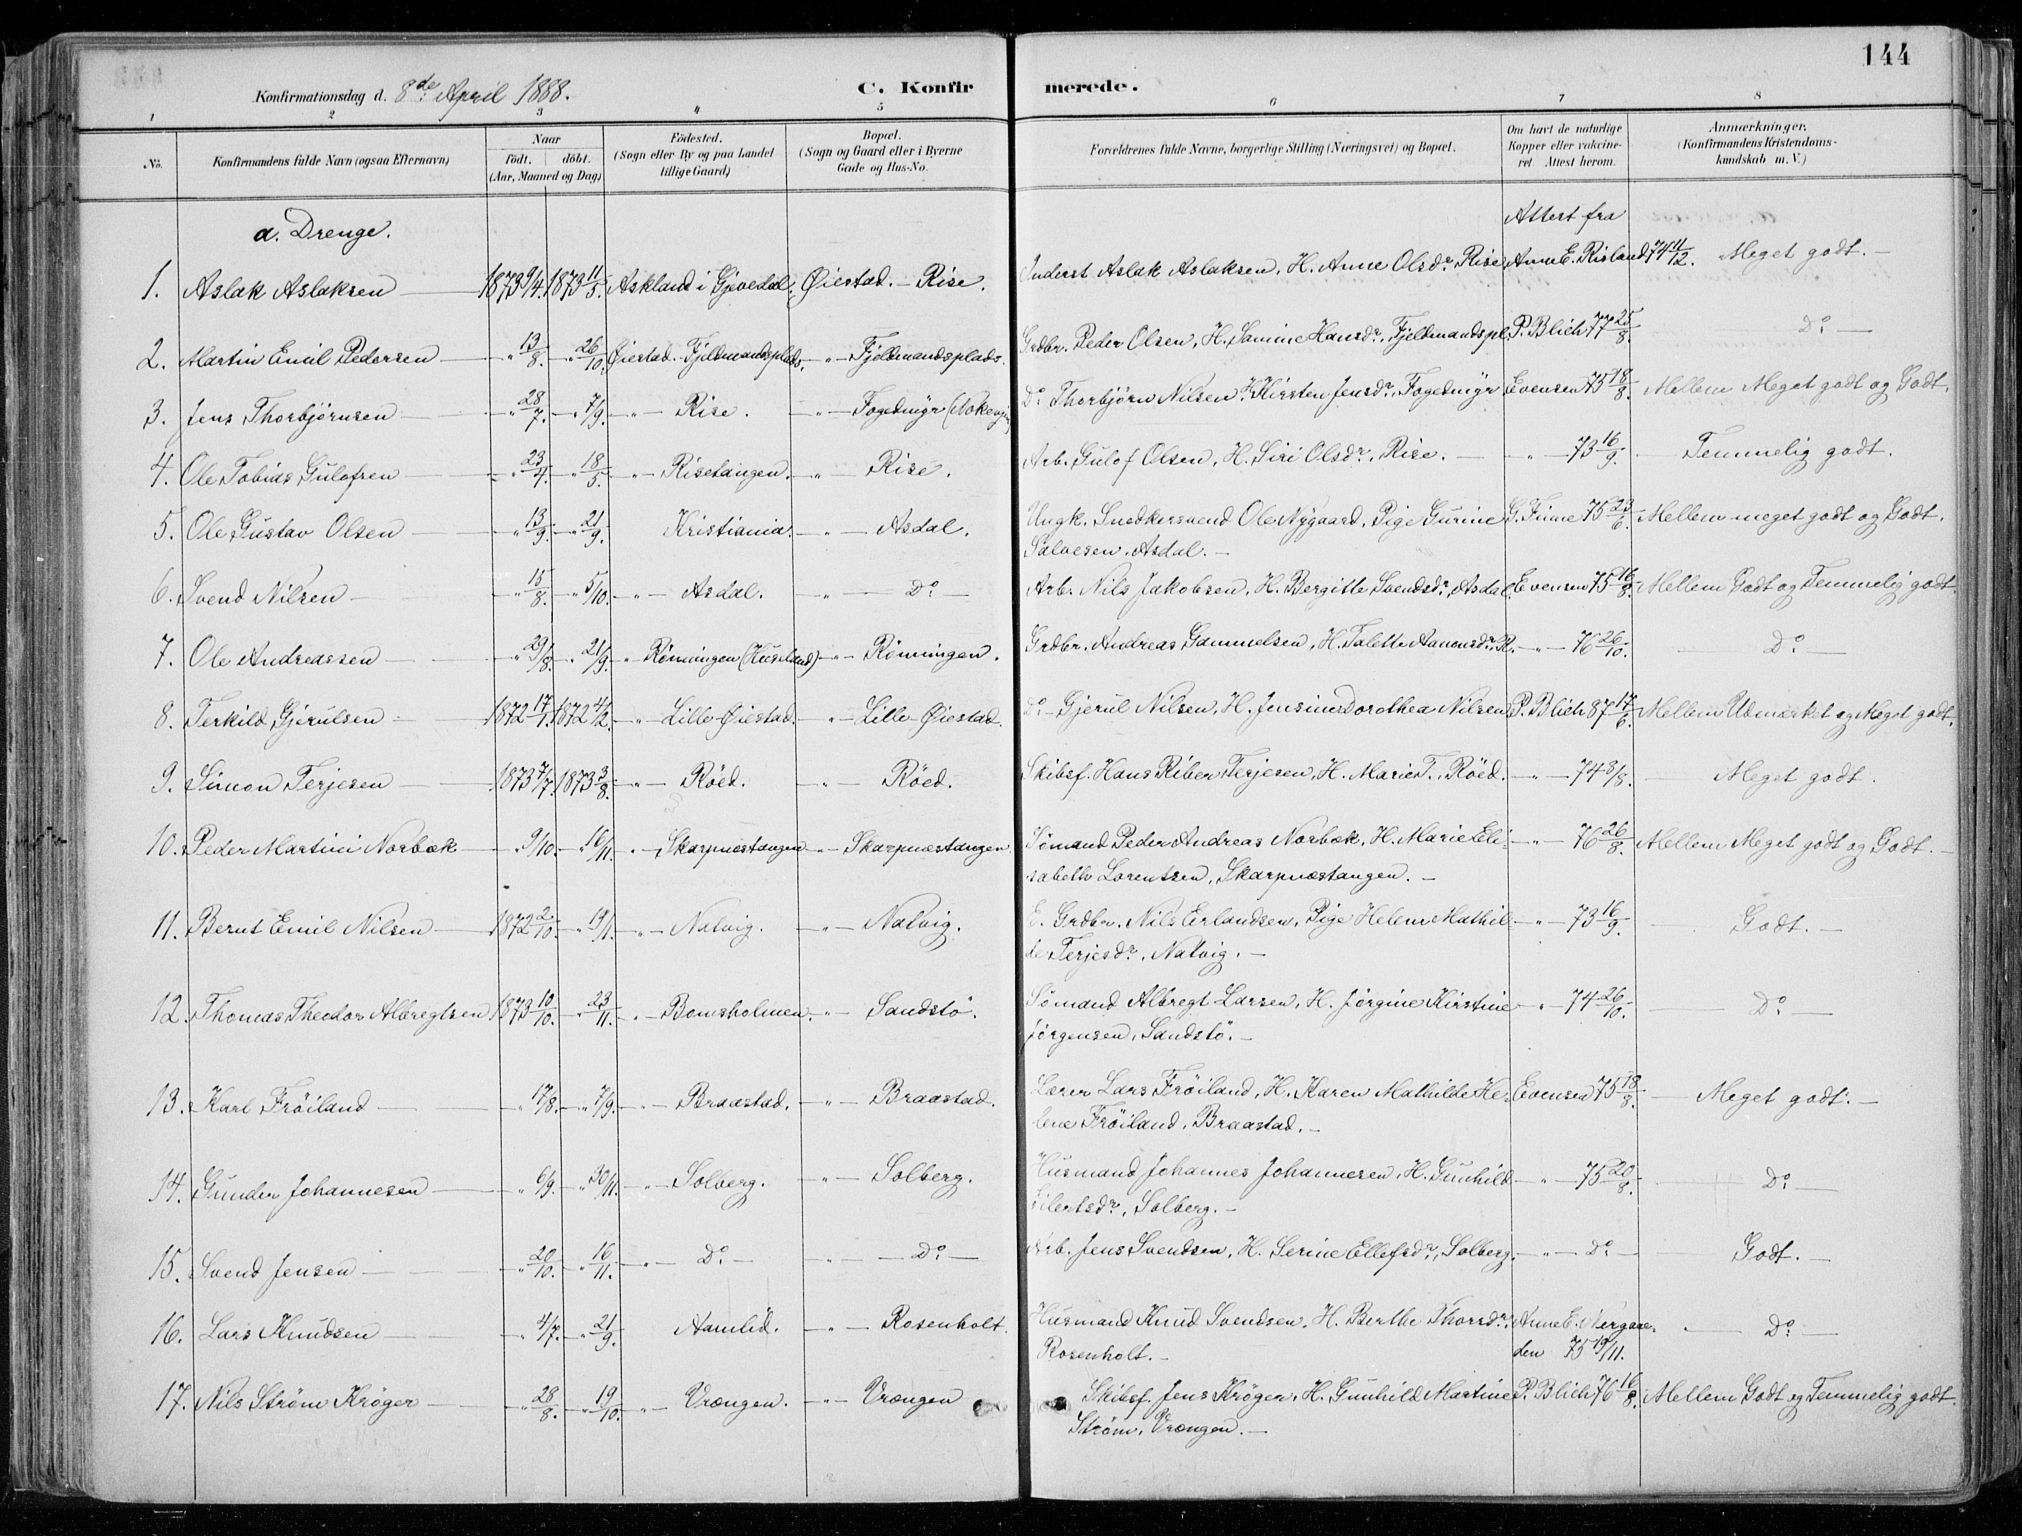 144
Konfirmationsdag d. 8de April 1888. C. Konfirmerede.
1 2 3 4 5 6 7 8
No. Konfirmandens fulde Navn (ogsaa Efternavn) Naar født. døbt. (Aar, Maaned og Dag) Fødested. (Sogn eller By og paa Landet tillige Gaard) Bopæl. (Sogn og Gaard eller i Byerne Gade og Hus-No. Forældrenes fulde Navne, borgerlige Stilling (Næringsvei) og Bopæl. Om havt de naturlige Kopper eller vaccineret. Attest herom. Anmærkninger. (Konfirmandens Kristendomskundskab m. V.)
a. Drenge. Attest fra
1. Aslak Aslaksen — 1873 9/4. 1873 11/5. Askland i Gjevedal, Øiestad. — Rise. Inderst Aslak Aslaksen, H. Anne Olsdr. Rise Anne E. Risland 74 11/12. Meget godt. —
2. Martin Emil Pedersen — „ 13/8. — „ 26/10. Øiestad. Fjeldmandsplads. — „ — Fjeldmandsplads. Grdbr. Peder Olsen, H. Samine Hansdr., Fjeldmandspl. P. Blich 77 25/8. Do. —
3. Jens Thorbjørnsen — „ 28/7. — „ 7/9. — „ — Rise. — „ — Fogedmyr Do. Thorbjørn Nilsen, H. Kirsten Jensdr., Fogedmyr Evensen 75 18/9. Mellem Meget godt og Godt.
4. Ole Tobias Gulofsen — „ 23/4. — „ 18/5. — „ — Risetangen. — „ — Rise. Arb. Gulof Olsen, H. Siri Olsdr., Rise. — „ — 73 16/9. Temmelig godt.
5. Ole Gustav Olsen — „ 13/9. — „ 21/9. Kristiania. — „ — Asdal. Ungk. Snedkersvend Ole Nygaard, Pige Gurine G. Fiine 75 23/6. Mellem meget godt og Godt.
Salvesen, Asdal. —
6. Svend Nilsen — „ 15/8. — „ 5/10. — „ — Asdal. „ — Do. — Arb. Nils Jakobsen, H. Bergitte Svendsdr., Asdal. Evensen 75 16/8. Mellem Godt og Temmelig godt.
7. Ole Andreassen — „ 29/8. — „ 21/9. „ Rønningen (Huseland) — „ — Rønningen. Grdbr. Andreas Gammelsen, H. Talette Aanonsdr., R. — „ — 76 26/10. Do. —
8. Terkild Gjerulsen — 1872 17/1. 1872 4/2. „ Lille Øiestad. — „ — Lille Øiestad. Do. — Gjerul Nilsen, H. Jensine Dorothea Nilsen P. Blich 87 17/6. Mellem Udmærket og Meget godt.
9. Simon Terjesen — 1873 7/7. 1873 3/8. — „ — Röed. — „ — Röed. Skibsf. Hans Riber Terjesen, H. Marie T., Röed. — „ — 74 8/8. — Meget godt.
10. Peder Martini Norbæk — „ 9/10. — „ 16/11. „ — Skarpnæstangen — „ — Skarpnæstangen Sømand Peder Andreas Norbæk, H. Marie Eli- — „ — 76 26/8. Mellem Meget godt og Godt. —
sabeth Lorentsen, Skarpnæstangen. —
11. Bernt Emil Nilsen — 1872 2/10. — „ 19/1. — „ — Natvig. — „ — Natvig. E. Grdbr. Nils Erlandsen, Pige Helene Mathil- — „ — 73 16/9. — Godt. —
de Terjesdr., Natvig. —
12. Thomas Theodor Albregtsen 1873 10/10. — „ 23/11. — „ — Bomsholmen. — „ — Sandstø. Sømand Albregt Larsen, H. Jørgine Kirstine — „ — 74 26/10. — Do. —
Jørgensen, Sandstø. —
13. Karl Frøiland — „ 17/8. — „ 7/9. — „ — Braastad. — „ — Braastad. Lærer Lars Frøiland, H. Karen Mathilde He- Evensen 75 18/8. — Meget godt. —
lene Frøiland, Braastad. —
14. Gunder Johannesen — „ 6/9. — „ 30/11. — „ — Solberg. — „ — Solberg. Husmand Johannes Johannesen, H. Gunhild — „ — 75 20/8. — Do. —
Eilertsdr., Solberg. —
15. Svend Jensen — „ 20/10. — „ 16/11. — „ — Do. — — „ — Do. — Arb. Jens Svendsen, H. Serine Ellefsdr., Solberg. — „ — Do. — Godt. —
16. Lars Knudsen — „ 4/7. — „ 21/9. Aamlid. — „ — Rosenholt. Husmand Knud Svendsen, H. Berthe Thorsdr., Anne E. — Do. —
Rosenholt. — den 75 19/11.
17. Nils Strøm Krøger — „ 28/8. — „ 19/10. — „ — Vrængen. — „ — Vrængen Skibsf. Jens Krøger, H. Gunhild Martine P. Blich 76 16/8. Mellem Godt og Temmelig godt.
Strøm, Vrængen. —